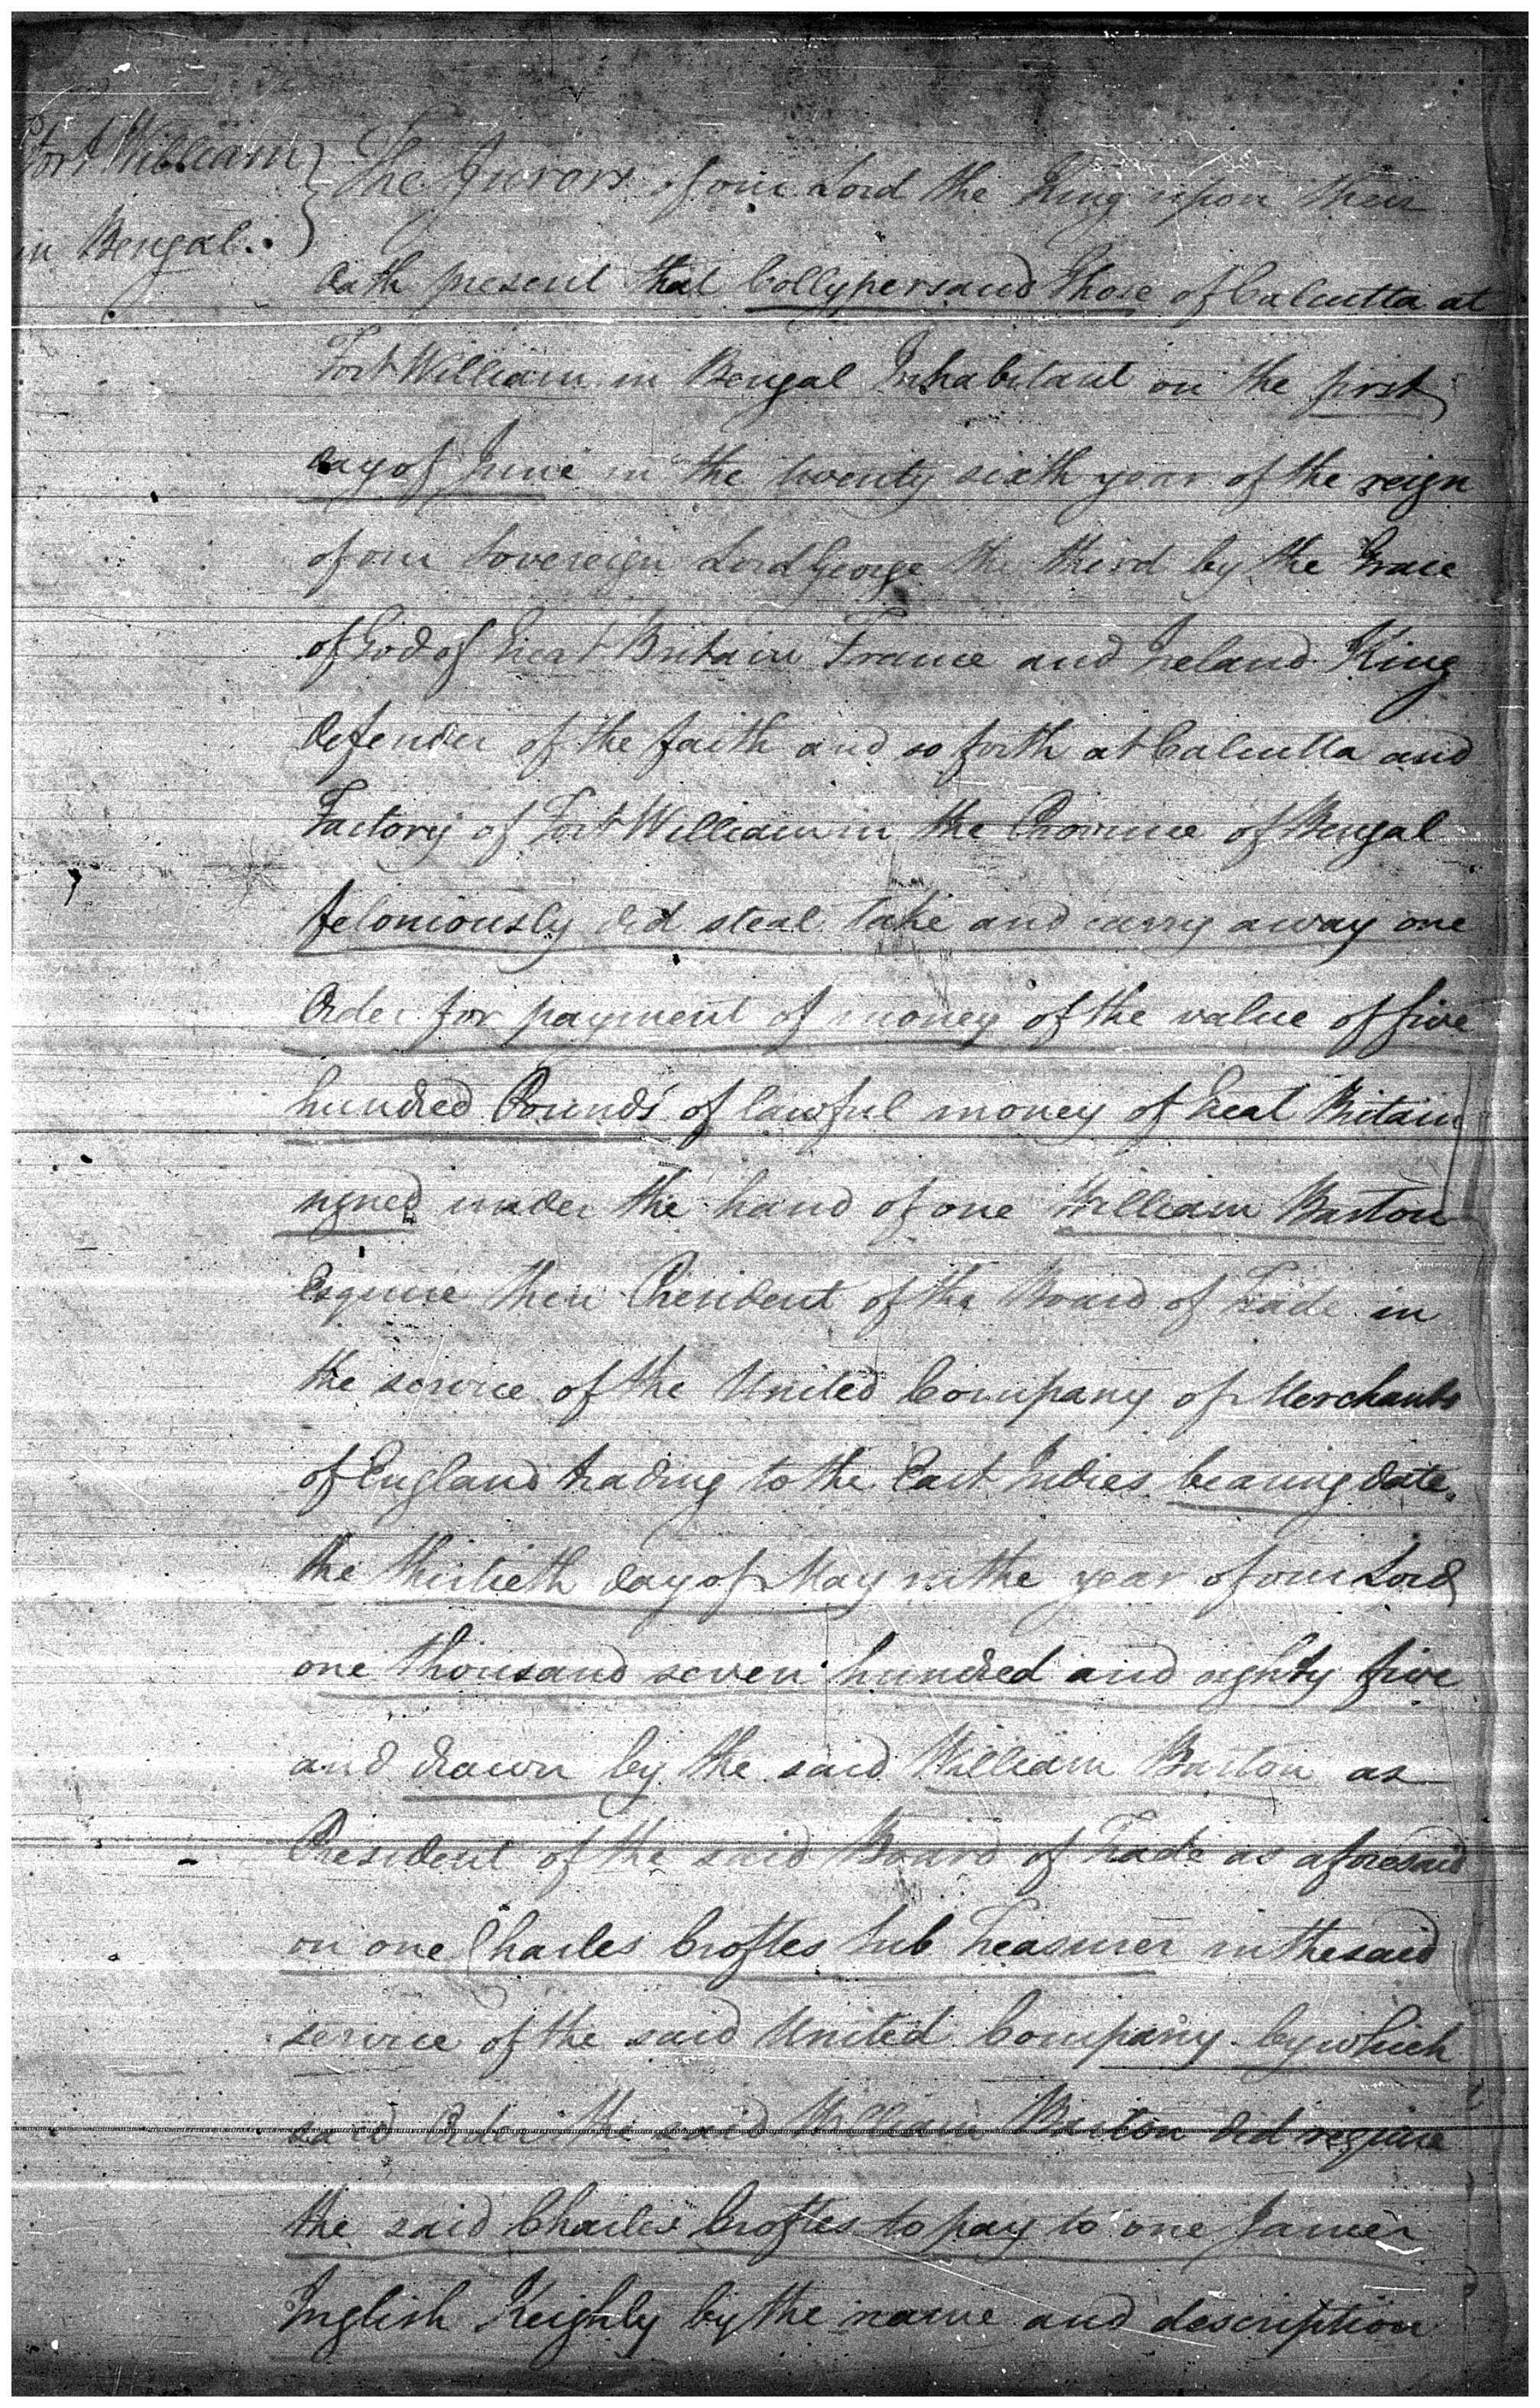 Fort William
in Bengal.
The Jurors of our Lord the King upon their
Oath present that Collypersaud Ghose of Calcutta at
Fort William in Bengal Inhabitant on the first
day of June in the twenty sixth year of the reign
of our Sovereign Lord George the third by the Grace
of God of Great Britain France and Ireland King
Defender of the faith and so forth at Calcutta and
Factory of Fort William in the Province of Bengal
feloniously did steal take and carry away one
Order for payment of money of the value of five
hundred Pounds of lawful money of Great Britain
signed under the hand of one William Barton
Esquire then President of the Board of Trade in
the service of the United Company of Merchants
of England trading to the East Indies bearing date
the thirtieth day of May in the year of our Lord
one thousand seven hundred and eighty five
and drawn by the said William Barton as
President of the said Board of Trade as aforesaid
on one Charles Croftes Sub Treasurer in the said
service of the said United Company by which
said Order the said William Barton did require
the said Charles Croftes to pay to one James
Inglish Keighly by the name and description